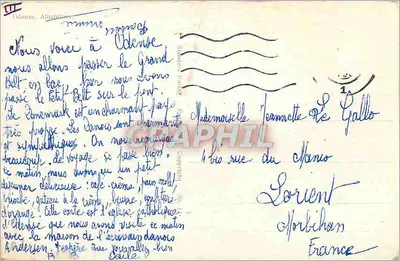 III
Odense, Albani
Samedi
Nous voici à Odense,
nous allons passer le Grand
Belt en bac. Hier nous avons
passé le Petit Belt sur le pont.
Le Danemark est un charmant pays
très propre. Les Danois sont charmants
et sympathiques. On nous remarque
beaucoup. Le voyage se passe bien.
Ce matin, nous avons eu un petit
déjeuner délicieux : café-crème, pain
gâteau à la crème, beurre,
Cette carte est l'église catholique
d'Odense que nous avons visitée ce matin
avec la maison de l'écrivain danois
Andersen. J'espère que vous allez bien
Paula
Mademoiselle Jeannette Le Gallo
4 bis rue du Manio
Lorient
Morbihan
France
CARPHIL